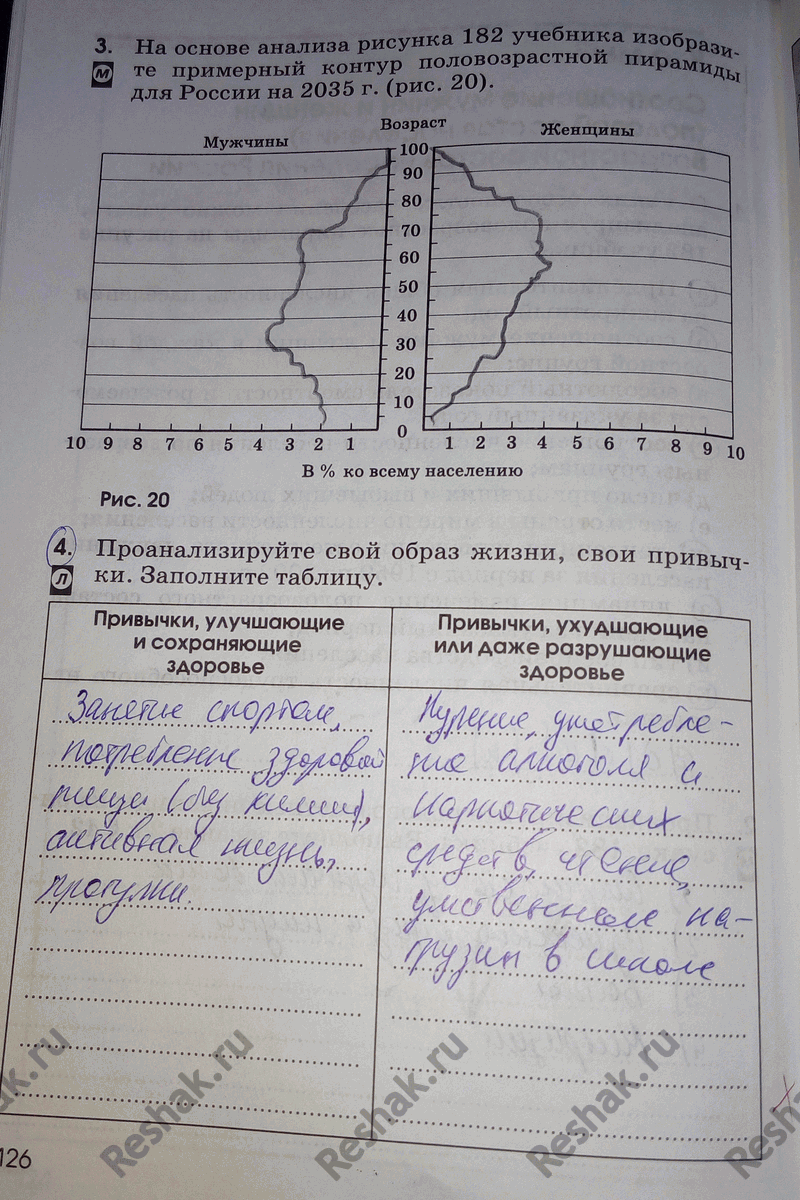 3. На основе анализа рисунка 182 учебника изобрази-
М те примерный контур половозрастной пирамиды
для России на 2035 г. (рис. 20).
Мужчины Возраст Женщины
100
90
80
70
60
50
40
30
20
10
0
10 9 8 7 6 5 4 3 2 1 1 2 3 4 5 6 7 8 9 10
В % ко всему населению
Рис. 20
4. Проанализируйте свой образ жизни, свои привыч-
Л ки. Заполните таблицу.
Привычки, улучшающие
и сохраняющие
здоровье
Занятие спортом,
потребление здоровой
пищи (без химии),
активная жизнь,
прогулки.
Привычки, ухудшающие
или даже разрушающие
здоровье
Курение, употребле-
ние алкоголя и
наркотических
средств, чтение,
умственные на-
грузки в школе
126
Reshak.ru
Reshak.ru
Reshak.ru
Reshak.ru